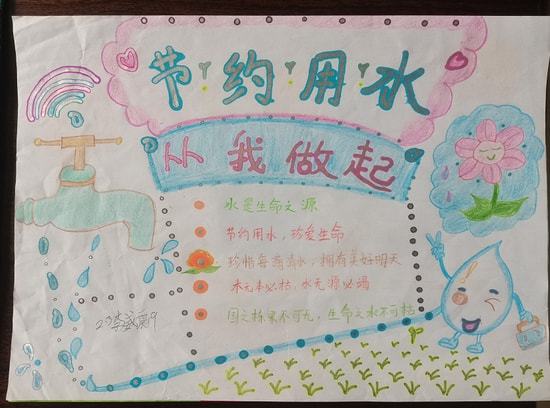 节约用水
从我做起
水是生命之源
节约用水，珍爱生命
珍惜每滴清水，拥有美好明天
木无本必枯，水无源必竭
国之栋梁不可无，生命之水不可枯
2.3李